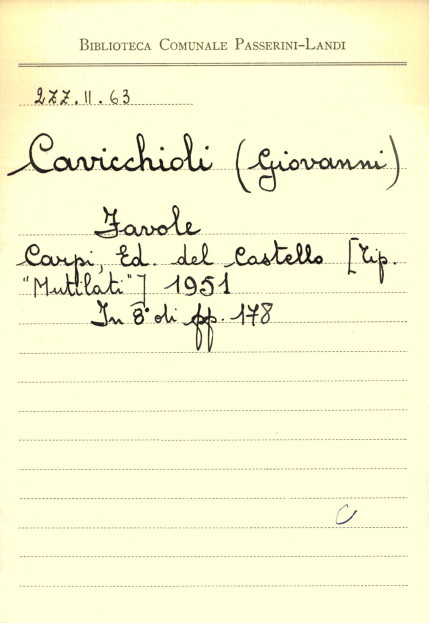 BIBLIOTECA COMUNALE PASSERINI-LANDI
2ZZ.II.63
Cavicchioli (Giovanni)
Favole
Carpi, Ed. del Castello [Tip.
"Mutilati"] 1951
In 8° di pp. 178
C